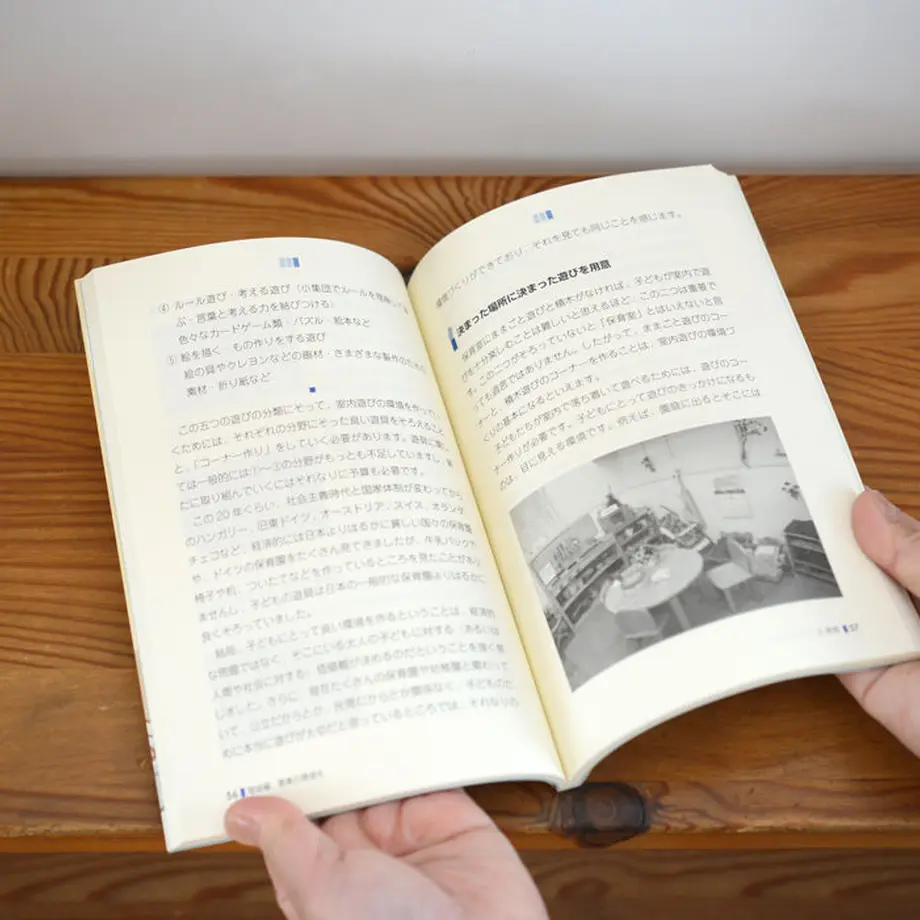 ④ ルール遊び・考える遊び（小集団でルールを理解して遊
ぶ・言葉と考える力を結びつける）
色々なカードゲーム類・パズル・絵本など
⑤ 絵を描く もの作りをする遊び
絵の具やクレヨンなどの画材・さまざまな製作のための
素材・折り紙など
この五つの遊びの分類にそって、室内遊びの環境を作ってい
くためには、それぞれの分野にそった良い遊具をそろえること
と、「コーナー作り」をしていく必要があります。遊具に関し
ては一般的には①～③の分野がもっとも不足していますし、新
たに取り組んでいくにはそれなりに予算も必要です。
この20年くらい、社会主義時代と国家体制が変わってから
のハンガリー、旧東ドイツ、オーストリア、スイス、オランダ、
チェコなど、経済的には日本よりはるかに貧しい国々の保育園
や、ドイツの保育園をたくさん見てきましたが、牛乳パックで
椅子や机、ついたてなどを作っているところを見たことがあり
ませんし、子どもの遊具は日本の一般的な保育園よりはるかに
良くそろっていました。
結局、子どもにとって良い環境を作るということは、経済的
な問題ではなく、そこにいる大人の子どもに対する（あるいは
人間や社会に対する）価値観が決めるのだということを強く感
じました。さらに、現在たくさんの保育園や幼稚園と関わって
いて、公立だからとか、民間だからとか関係なく、子どものた
めに本当に遊びが大切だと思っているところでは、それなりの
56
環境づくりができており、それを見ても同じことを感じます。
決まった場所に決まった遊びを用意
保育室にままごと遊びと積木がなければ、子どもが室内で遊
びを十分楽しむことは難しいと思えるほど、この二つは重要で
す。この二つがそろっていないと「保育室」とはいえないと言
っても過言ではありません。したがって、ままごと遊びのコー
ナーと、積木遊びのコーナーを作ることは、室内遊びの環境づ
くりの基本になるといえます。
子どもたちが室内で落ち着いて遊べるためには、遊びのコー
ナー作りが必要です。子どもにとって遊びのきっかけになるも
のは、目に見える環境です。例えば、園庭に出るとそこには
57